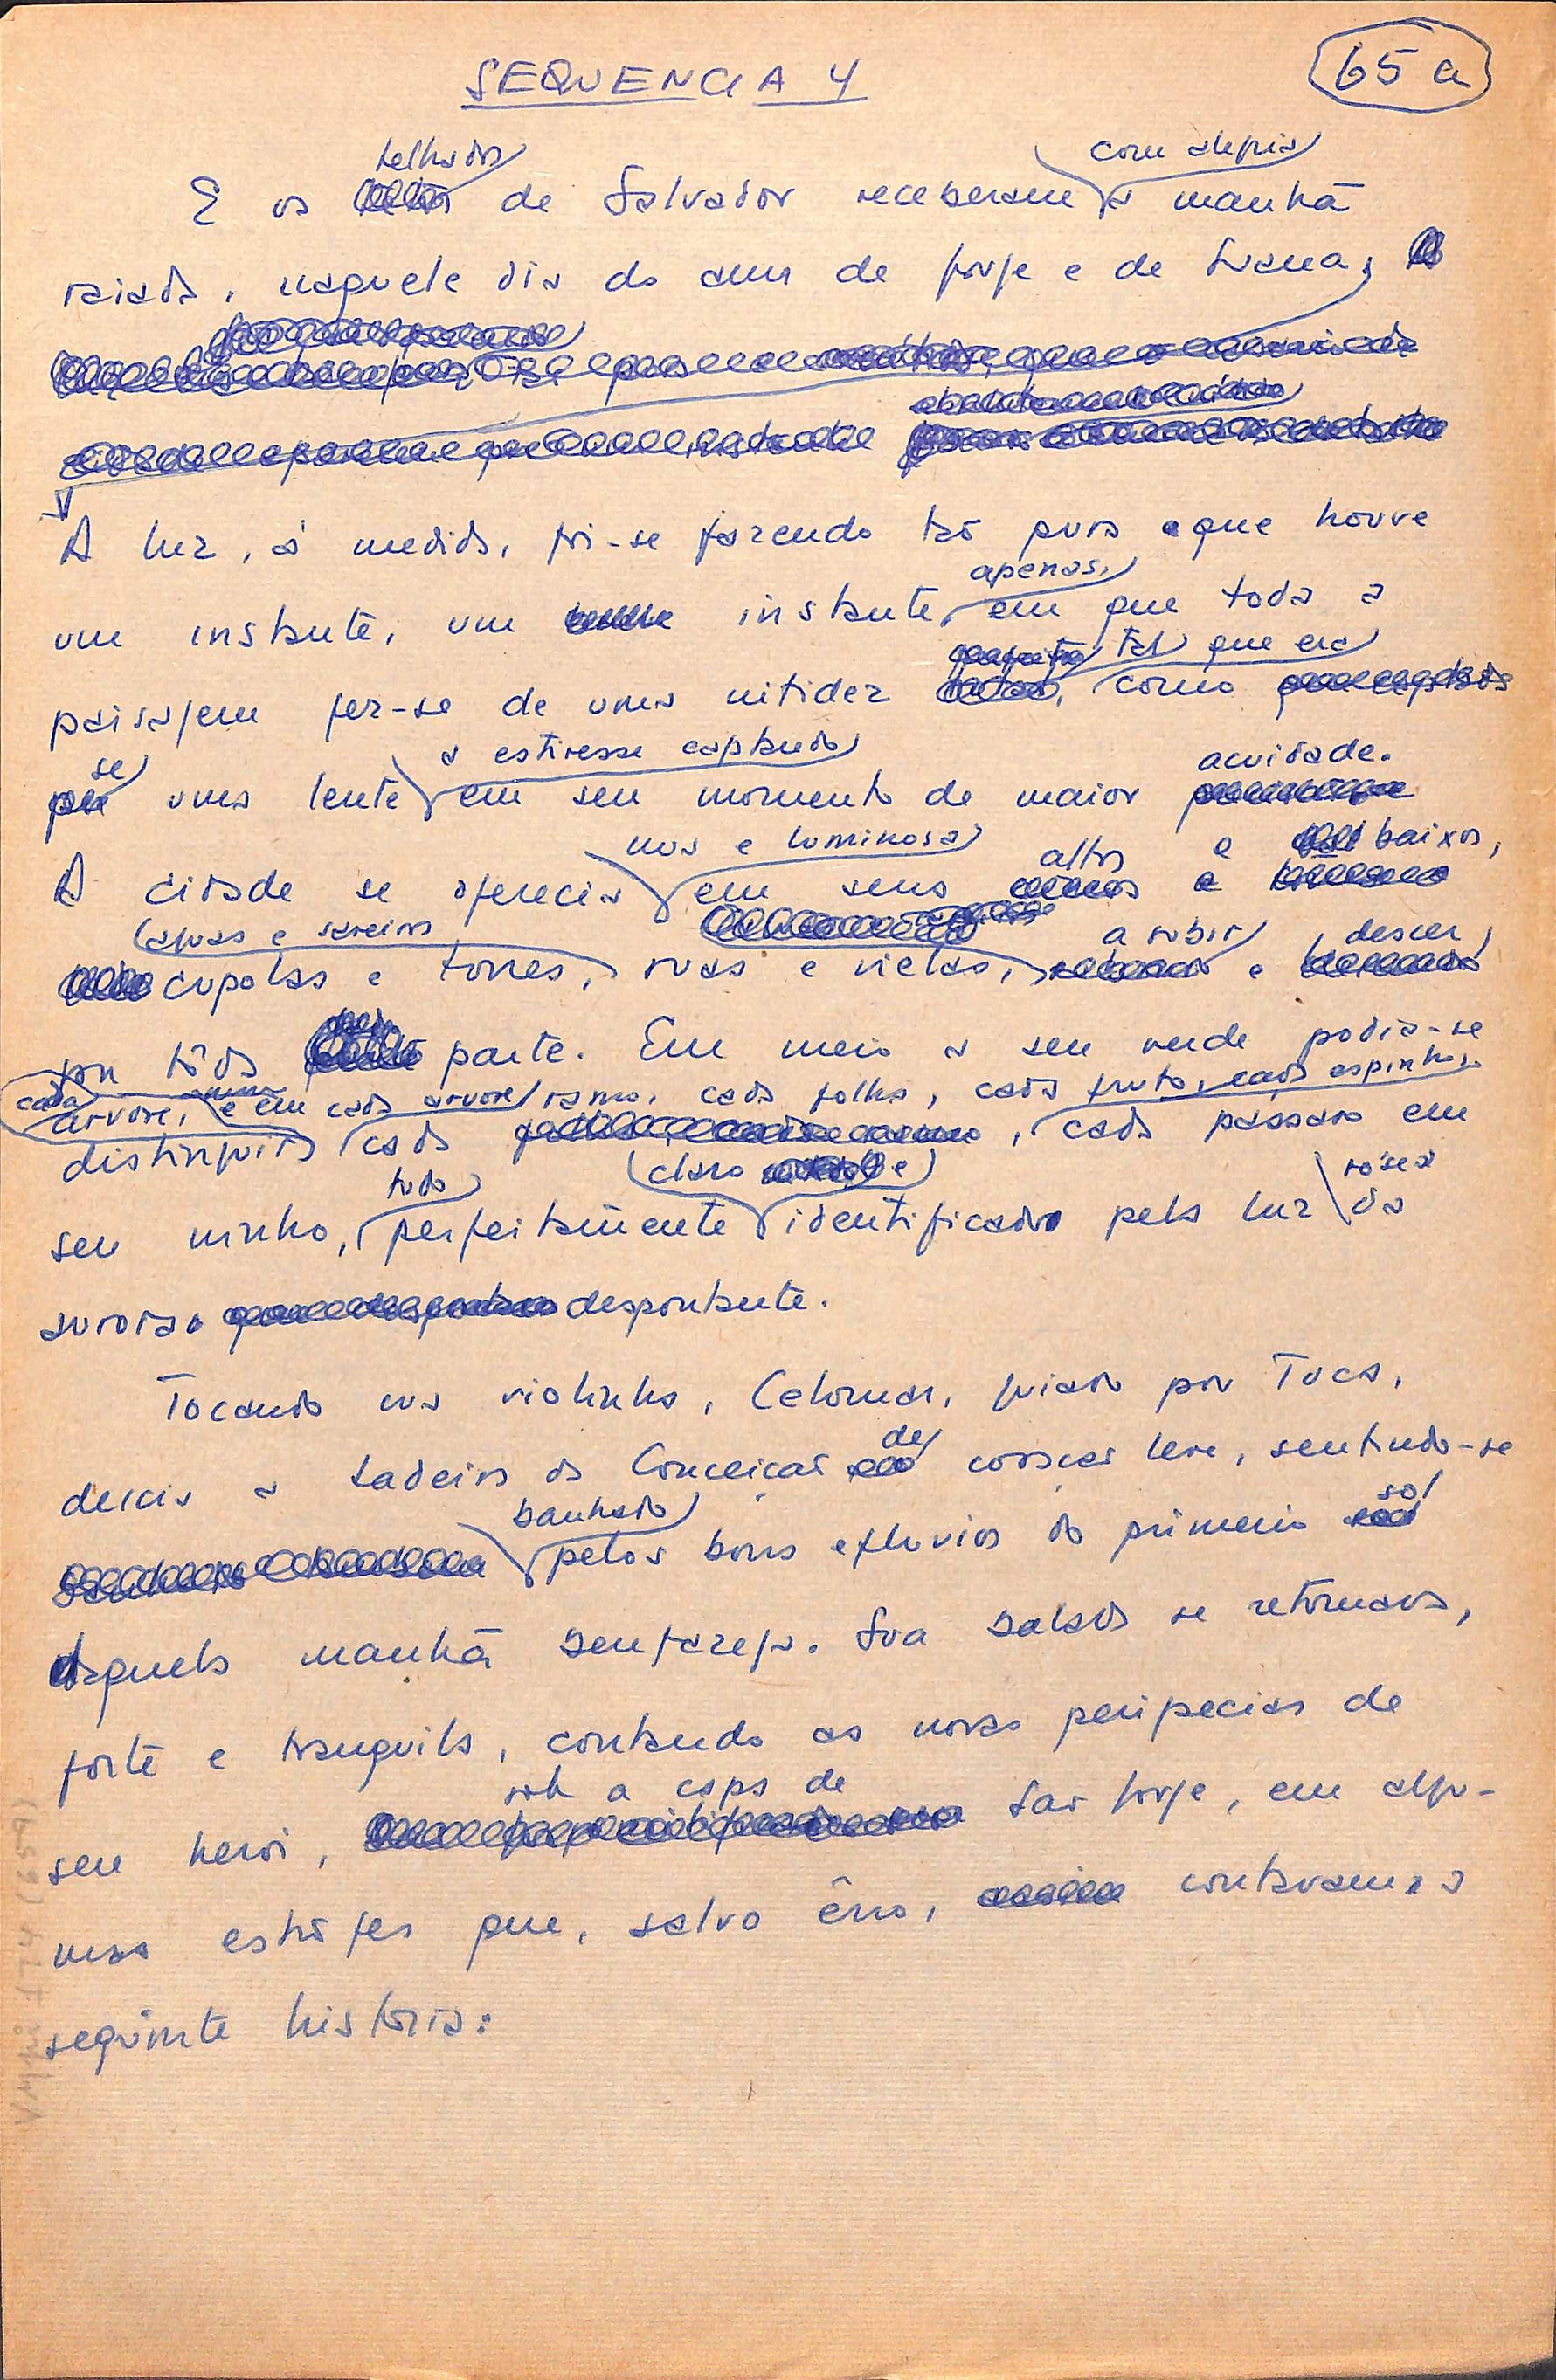 SEQUENCIA 4
65 a
telhados com alegria
E os de Salvador receberam a manhã
raiada, naquele dia do amor de Jorge e de Luana,
A luz, à medida, foi-se fazendo tão pura que houve
apenas,
um instante, um instante, em que toda a
tal que era
paisagem fez-se de uma nitidez como
se a estivesse captando acuidade.
uma lente em seu momento de maior
nua e luminosa altos e baixos,
A cidade se oferecia em seus
águas e saveiros a subir descer,
cupolas e torres, ruas e vielas, e
por tôda parte. Em meio a seu verde podia-se
cada árvore, e em cada árvore ramo, cada folha, cada fruto, cada espinho,
distinguir cada , cada pássaro em
tudo claro e rósea
seu ninho, perfeitamente identificado pela luz da
aurora despontante.
Tocando sua violinha, Celomar, guiado por Tuca,
de
descia a Ladeira da Conceição coração leve, sentindo-se
banhado sol
pelos bons eflúvios do primeiro
daquela manhã benfazeja. Sua balada se retomava,
forte e tranquila, contando as novas peripecias de
sob a capa de
seu herói, São Jorge, em algu-
mas estrofes que, salvo êrro, contavam a
seguinte historia: